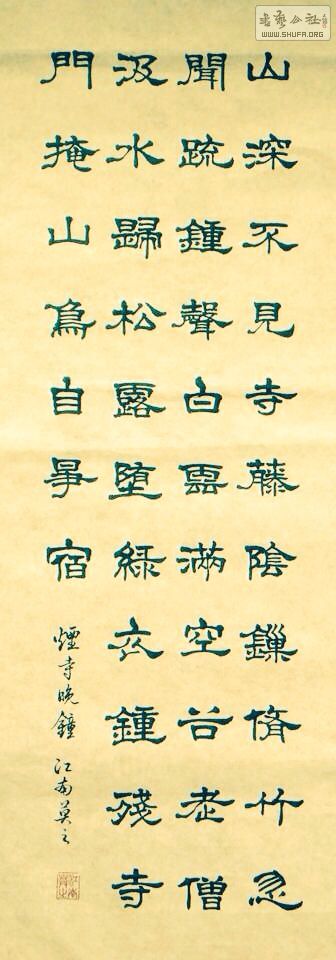 山深不見寺藤陰鏁脩竹忽
聞疏鍾聲白雲滿空谷老僧
汲水歸松露墮綠衣鍾殘寺
門掩山鳥自爭宿
煙寺晚鐘 江南莫之
書藝公社
WWW.SHUFA.ORG